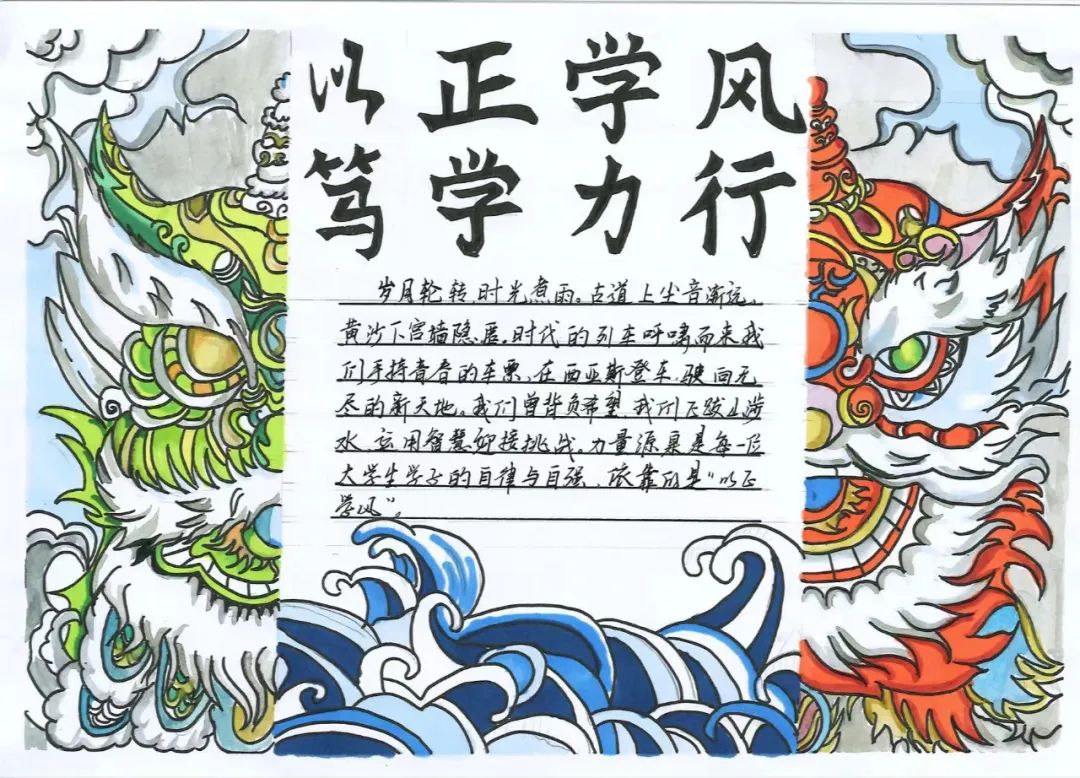 以正学风
笃学力行
岁月轮转,时光煮雨。古道上尘音渐远,
黄沙下宫墙隐匿。时代的列车呼啸而来我
们手持青春的车票,在西亚斯登车,驶向无
尽的新天地。我们曾背负希望,我们飞跋山涉
水,运用智慧迎接挑战。力量源泉是每一位
大学生学子的自律与自强、依靠的是“以正
学风”。